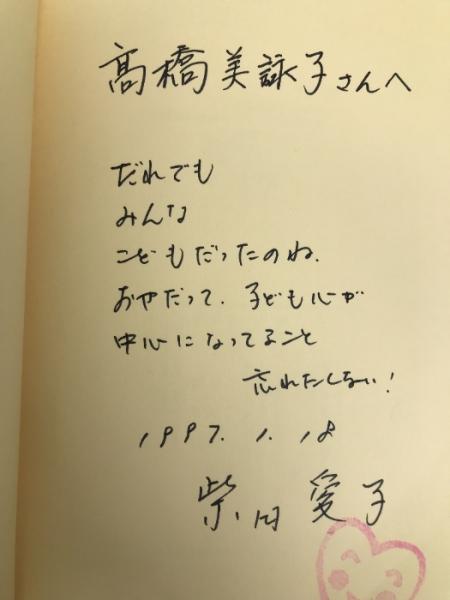 髙橋美詠子さんへ
だれでも
みんな
こどもだったのね.
おやだって.子ども心が
中心になってること
忘れたくない!
1997.1.18
柴田愛子